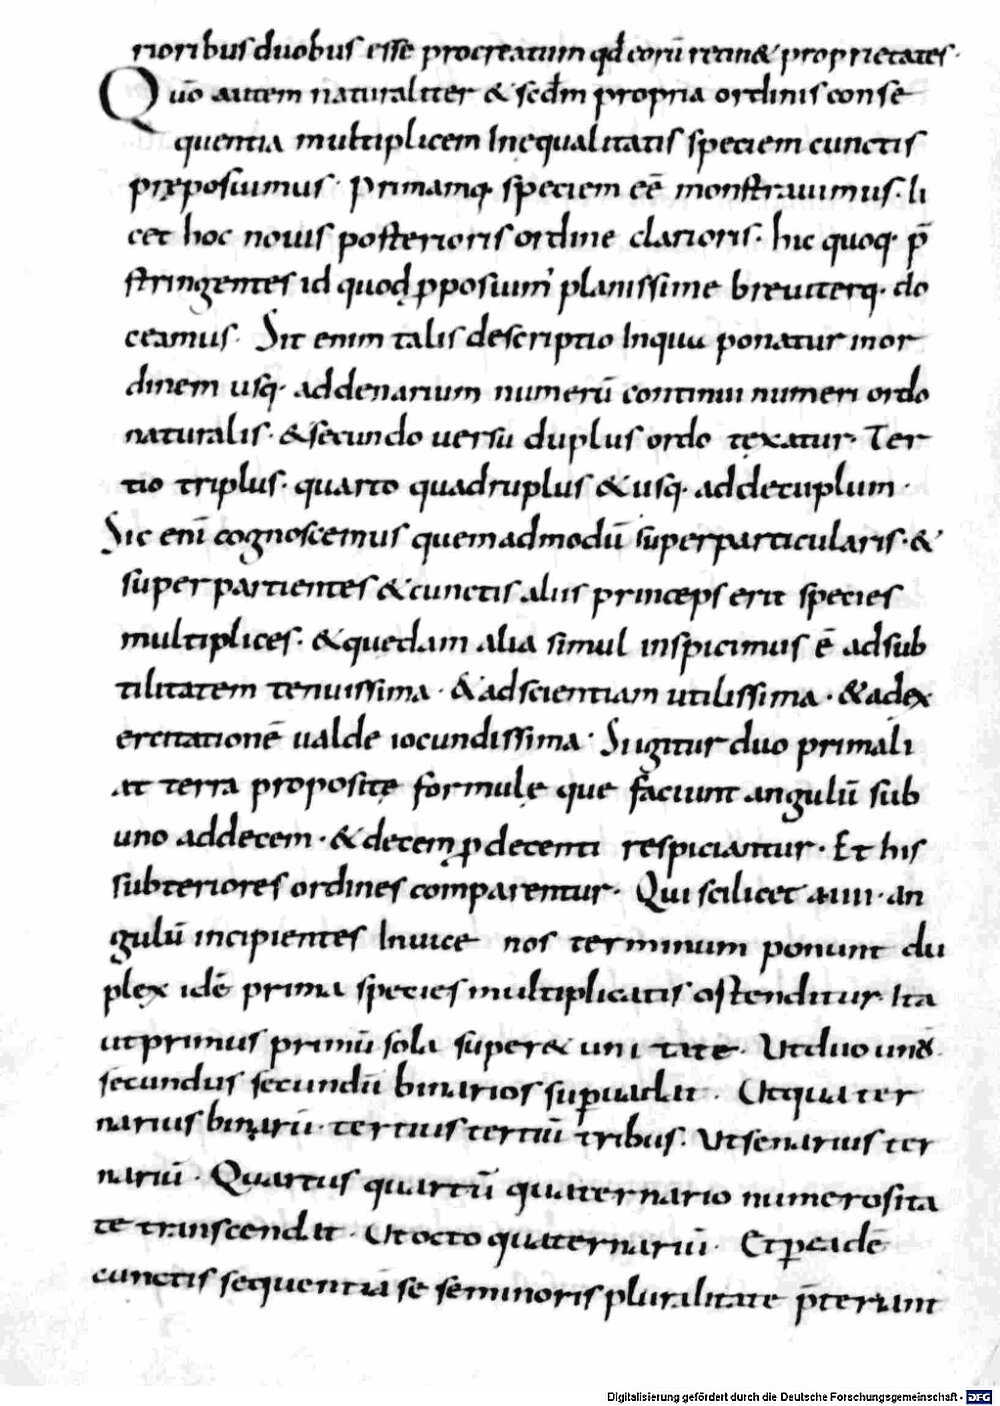 rioribus duobus esse procreatum qđ eorū retin& proprietates·
Quō autem naturaliter & sedm propria ordinis conse
quentia multiplicem Inequalitatis speciem cunctis
pręposuimus· Primamq· speciem eē monstrauimus· li
cet hoc nouis posterioris ordine clarioris· hic quoq· p̄
stringentes id quod ꝓposuim' planissime breuiterq· do
ceamus· Sit enim talis descriptio Inqua ponatur inor
dinem usq· addenarium numerū continui numeri ordo
naturalis· & secundo uersu duplus ordo tęxatur· Ter
tio triplus· quarto quadruplus & usq· addecuplum·
Sic enī cognoscemus quemadmodū superparticularis· &
superpartientes & cunctis aliis princeps erit species
multiplices· & quedam alia simul inspicimus ē adsub
tilitatem tenuissima· & adscientiam utilissima· & adex
ercitationē ualde iocundissima· Si igitur duo prima li
at terra propositę formulę que faciunt angulū sub
uno addecem· & decem ꝑ decenti respiciantur· Et his
subteriores ordines comparentur· Qui scilicet a·iiii· an
gulū incipientes Inuice nos terminum ponunt du
plex idē prima species multiplicatis ostenditur· Ita
ut primus primū sola super& unitatē· Ut duo unū·
secundus secundū binarios suꝑuadit· Ut quater
narius binariū· tertius tertiū tribus· Ut senarius ter
nariū· Quartus quartū quaternario numerosita
te transcendit· Ut octo quaternariū· Et ꝑ eadē
cunctis sequentia se seminoris pluralitate p̄tereunt
Digitalisierung gefördert durch die Deutsche Forschungsgemeinschaft - DFG